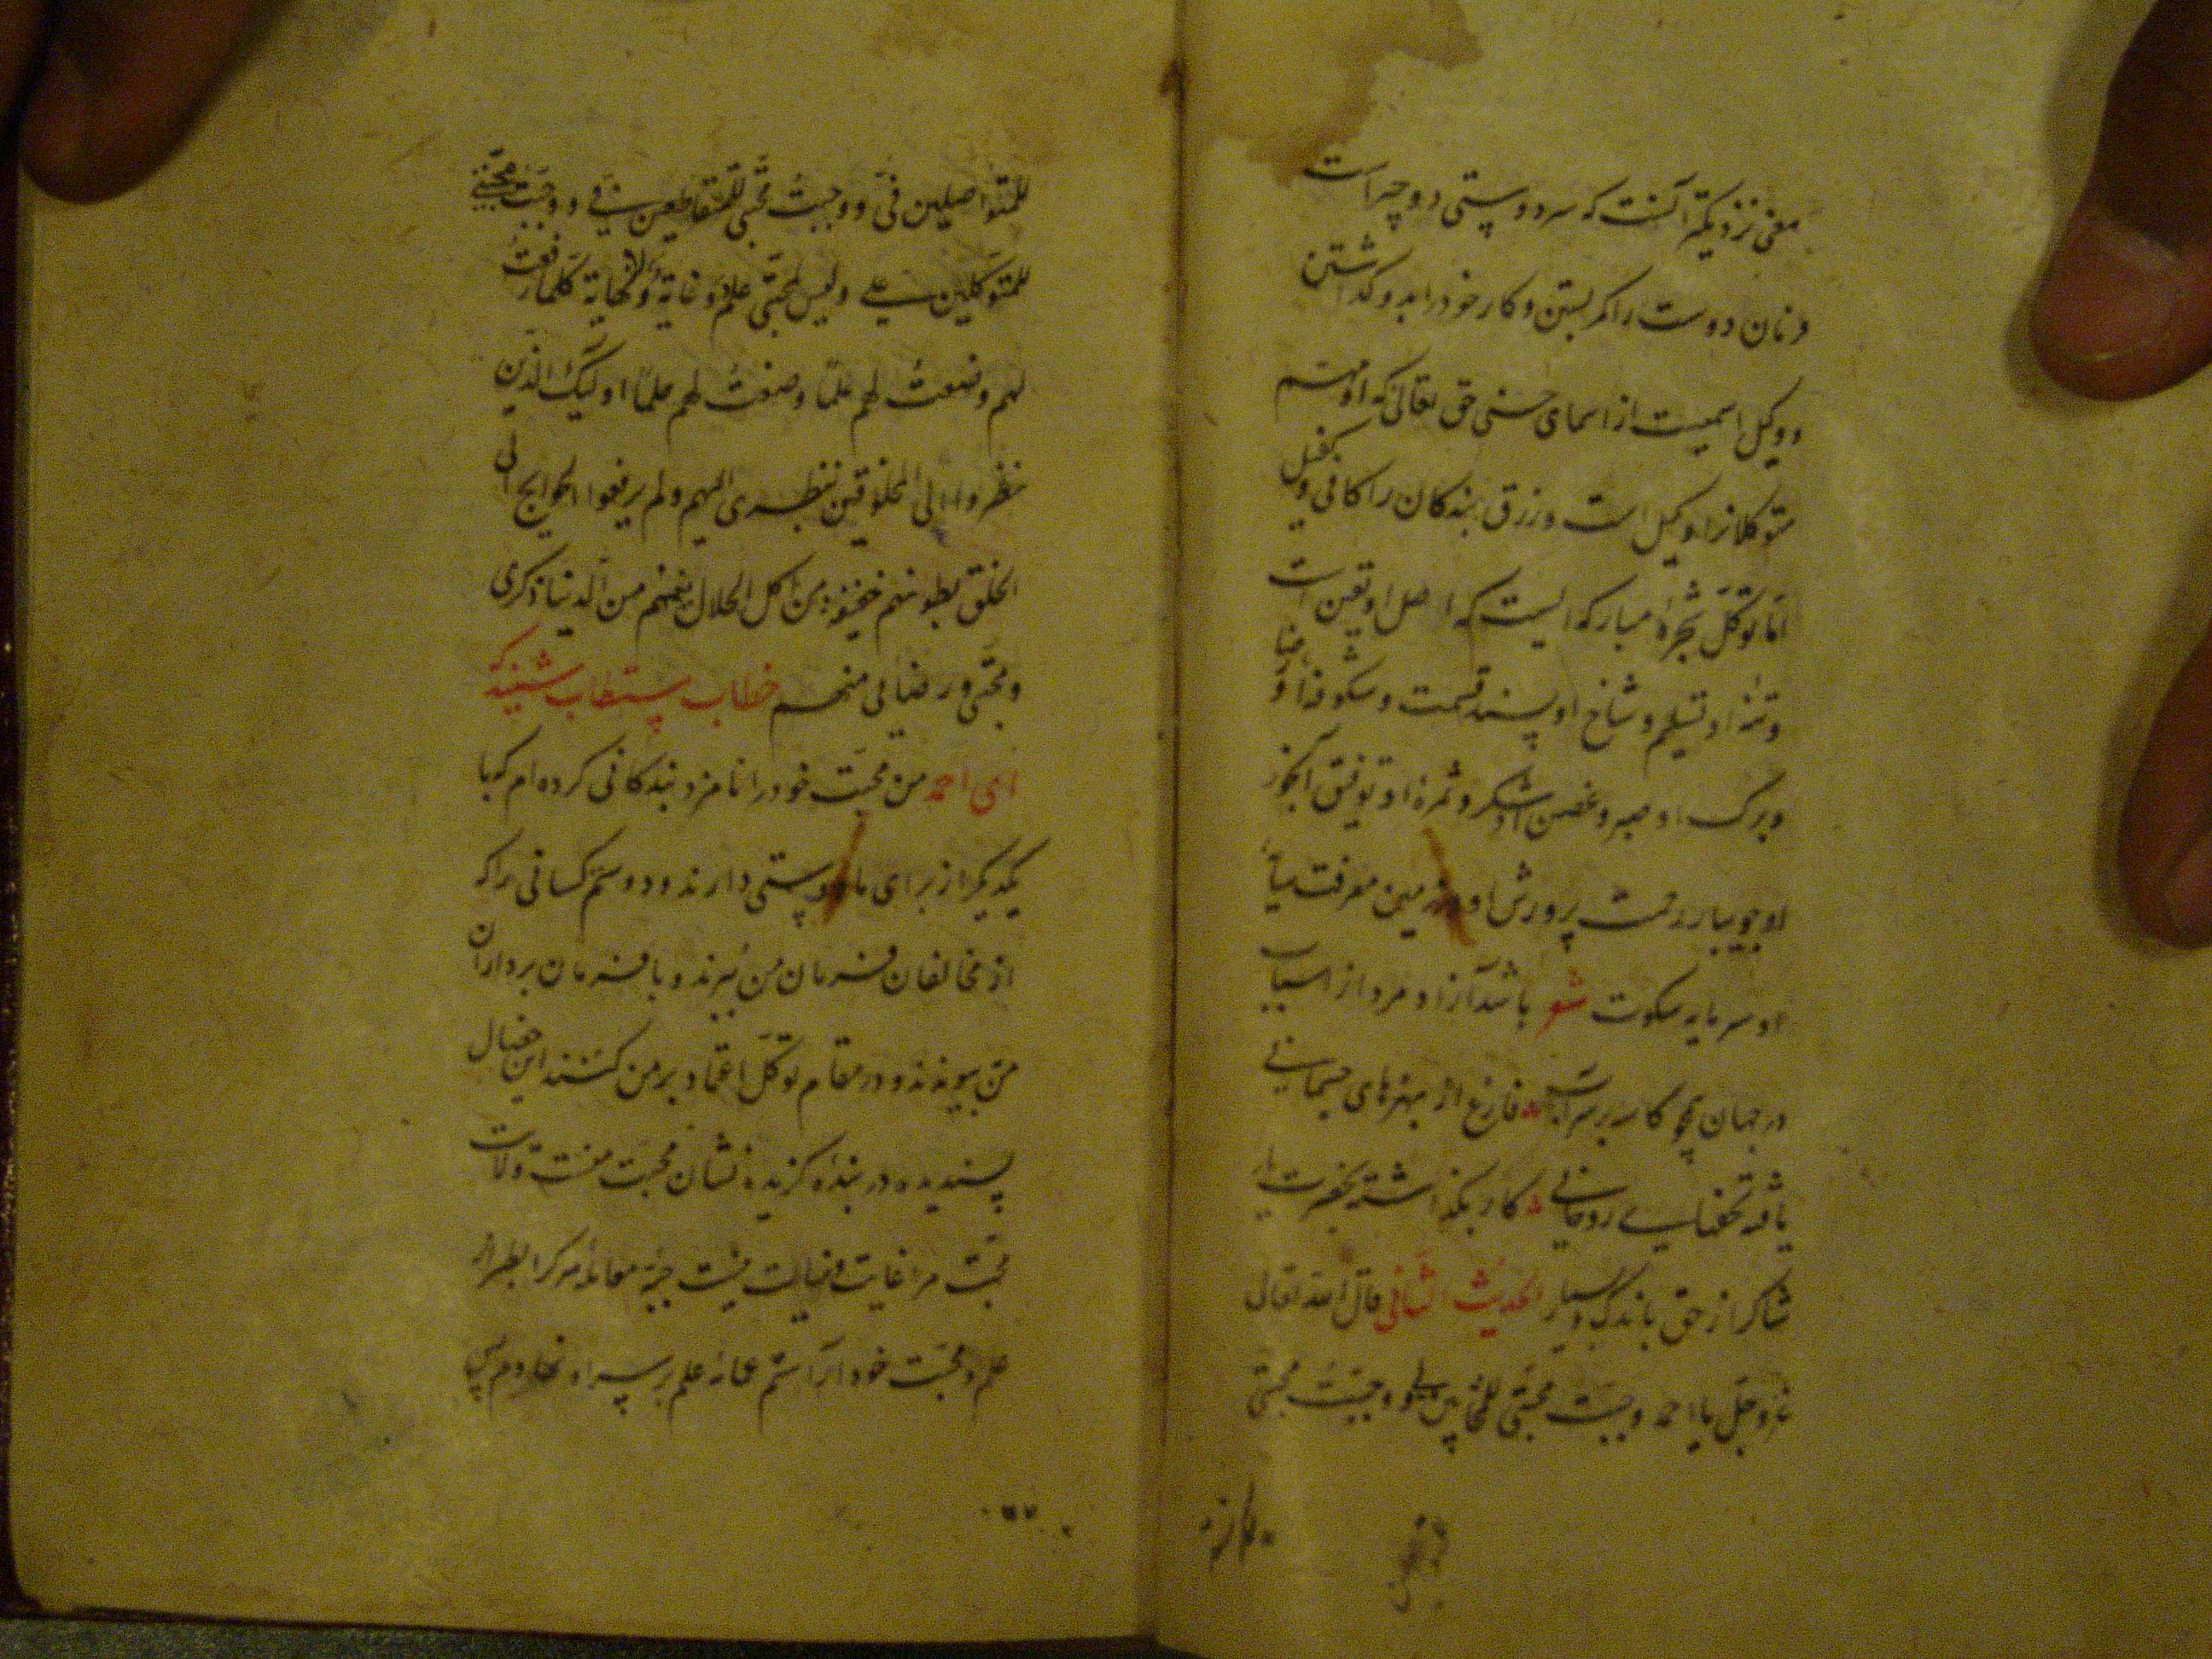 معنی نزدیکتر آنست که سر دوستی دو چیز است
فرمان دوست را کمر بستن و کار خود را بدو گذاشتن
و وکیل اسمیست از اسمای حسنی حق تعالی که او مهم
متوکلانرا وکیل است و رزق بندکان را کافی و کفیل
اما توکل شجرهٔ مبارکه ایست که اصل او یقین است
و تنهٔ او تسلیم و شاخ او پسند قسمت و شکوفهٔ او رضا
و برک او صبر و غصن او شکر و ثمرهٔ او توفیق آبخور
او جویبار رحمت پرورش او در زمین معرفت
او سرمایه سکوت شعر باشد آزاد مرد از اسباب
در جهان همچو کاسه بر سر آب فارغ از بهرهای جسمانی
یافته تحفهای روحانی کار بگذاشته بحضرت یار
شاکر از حق باندک و بسیار الحدیث الثانی قال الله تعالی
عز و جل یا احمد وجبت محبتی للمتحابین فی و وجبت محبتی
للمتواصلین فی و وجبت محبتی للمتقاطعین فی و وجبت محبتی
للمتوکلین علی و لیس لمحبتی علم و لا غایة و لا نهایة کلما رفعت
لهم وضعت لهم علما وضعت لهم علما اولیک الذین
نظروا الی المخلوقین بنظری الیهم و لم یرفعوا الحوایج الی
الخلق بطونهم خفیفة من اکل الحلال نعیمهم من الدنیا ذکری
و محبتی و رضایی منهم خطاب مستطاب شنید که
ای احمد من محبت خود را نامزد بندکانی کرده ام که با
یکدیکر از برای ما دوستی دارند و دوستم کسانی را که
از مخالفان فرمان من ببرند و با فرمان برداران
من پیوندند و در مقام توکل اعتماد بر من کنند این خصال
پسندیده در بندهٔ کزیده نشان محبت منست و
محبت مرا غایت و نهایت نیست جبهٔ معامله هر کرا بطراز
علم و محبت خود آراستم علم بر سر او نهادم پس